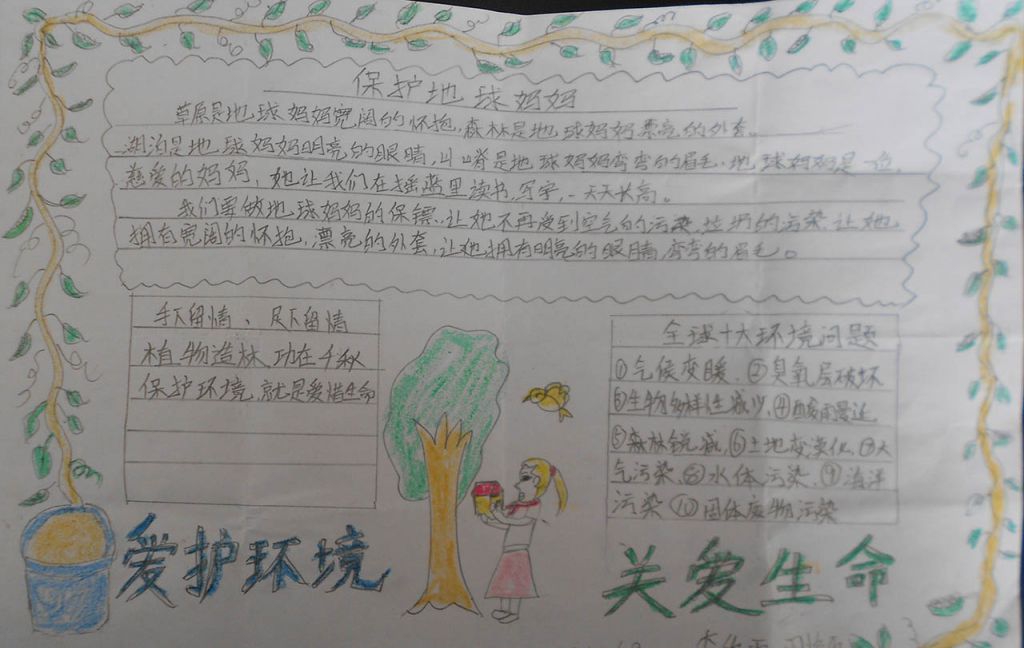 保护地球妈妈
草原是地球妈妈宽阔的怀抱,森林是地球妈妈漂亮的外套。
湖泊是地球妈妈明亮的眼睛,山脊是地球妈妈弯弯的眉毛。地球妈妈是一位
慈爱的妈妈,她让我们在摇篮里读书,写字,一天天长高。
我们要做地球妈妈的保镖,让她不再受到空气的污染,垃圾的污染,让她
拥有宽阔的怀抱,漂亮的外套,让她拥有明亮的眼睛,弯弯的眉毛。
手下留情、足下留情
植物造林,功在千秋
保护环境,就是爱惜生命
全球十大环境问题
①气候变暖、②臭氧层破坏
③生物多样性减少、④酸雨蔓延
⑤森林锐减、⑥土地变漠化、⑦大
气污染、⑧水体污染、⑨海洋
污染、⑩固体废物污染
爱护环境
关爱生命